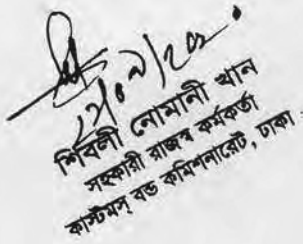 শিবলী নোমানী খান
সহকারী রাজস্ব কর্মকর্তা
কাস্টমস্ বন্ড কমিশনারেট, ঢাকা